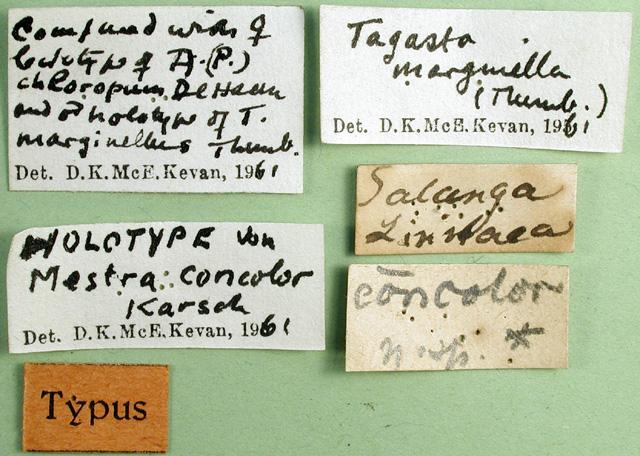 Compared with ♀
lectotype of A. (P.)
chloropum De Haan
and ♂ holotype of T.
marginellus Thunb.
Det. D.K.McE.Kevan, 1961
Tagasta
marginella
(Thunb.)
Det. D.K.McE.Kevan, 1961
Salanga
HOLOTYPE von
Mestra concolor
Karsch
Det. D.K.McE.Kevan, 1961
concolor
n. sp. *
Typus